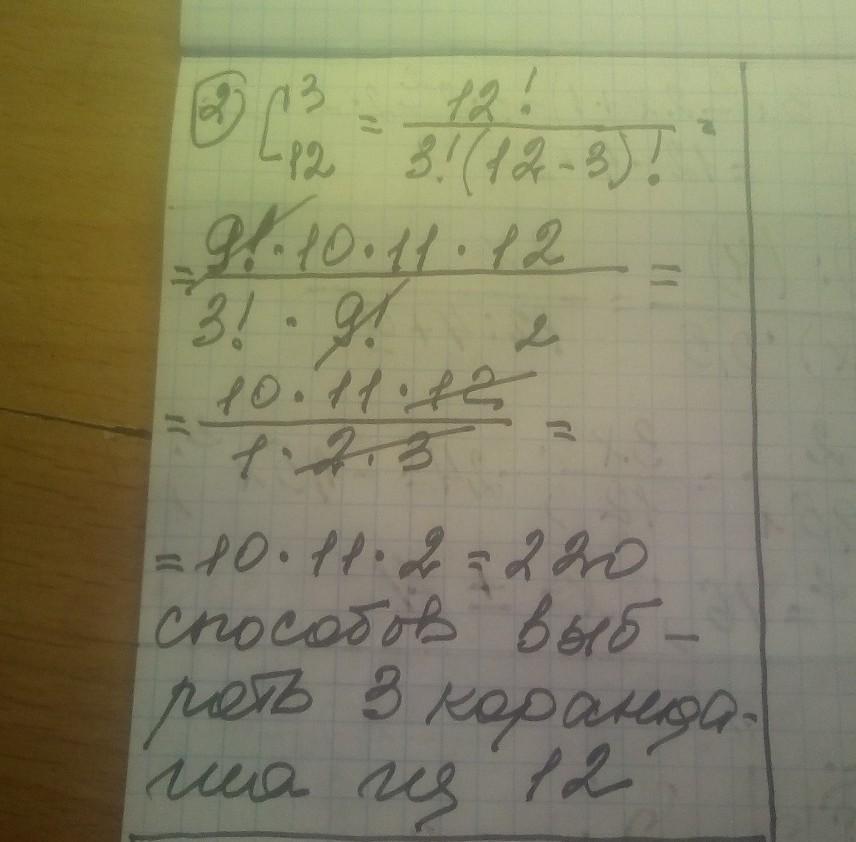 2) C³₁₂ = 12! / 3!(12-3)! =
= 9!·10·11·12 / 3!·9! =
2
= 10·11·12 / 1·2·3 =
= 10·11·2 = 220
способов выб-
рать 3 каранда-
ша из 12